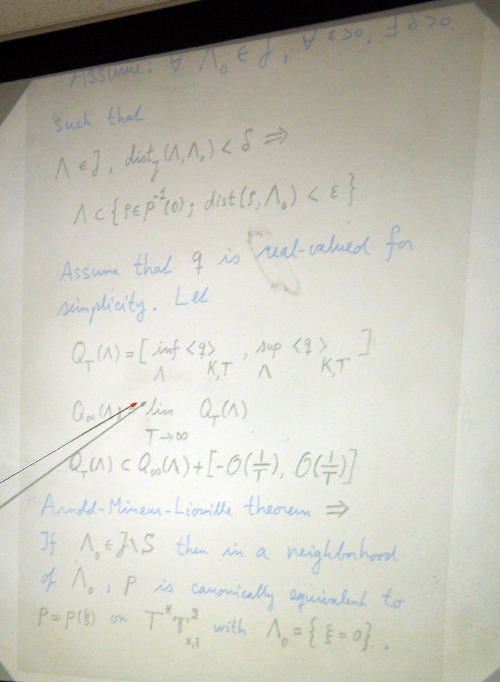 Assume: ∀ Λ₀ ∈ J, ∀ ε>0, ∃ δ>0
such that
Λ ∈ J, dist_J(Λ,Λ₀) < δ ⇒
Λ ⊂ {ρ∈p⁻¹(0); dist(ρ,Λ₀) < ε}
Assume that q is real-valued for
simplicity. Let
Q_T(Λ) = [inf_Λ <q>_{K,T}, sup_Λ <q>_{K,T}]
Q_∞(Λ) = lim_{T→∞} Q_T(Λ)
Q_T(Λ) ⊂ Q_∞(Λ) + [-O(1/T), O(1/T)]
Arnold-Mineur-Liouville theorem ⇒
If Λ₀ ∈ J\S then in a neighborhood
of Λ₀, P is canonically equivalent to
P = P(ξ) on T*T²_{x,ξ} with Λ₀ = {ξ=0}.